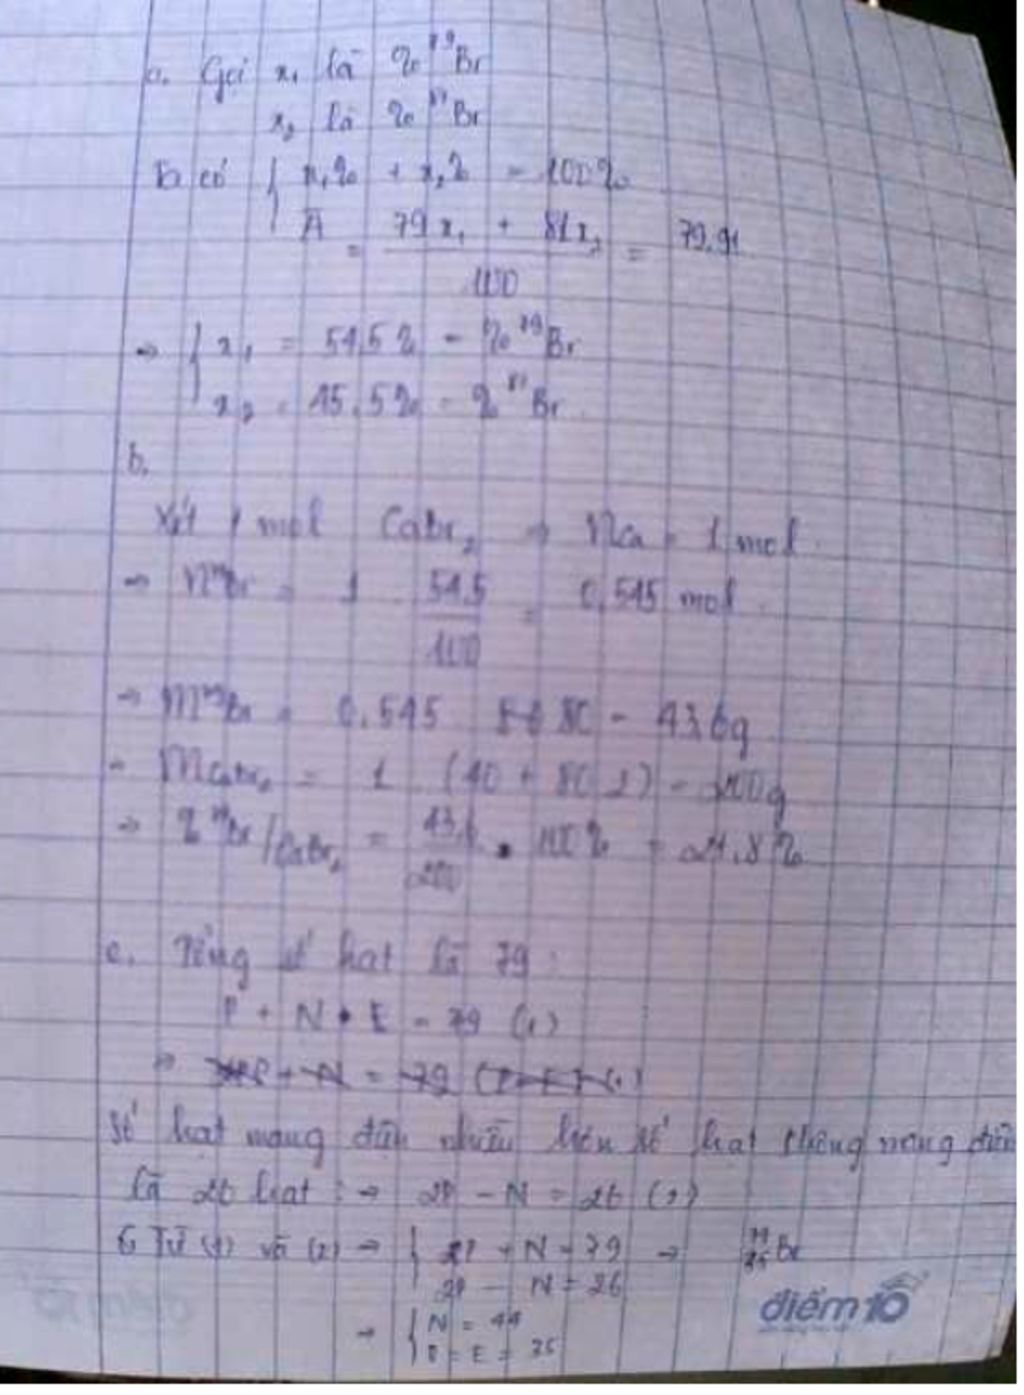 a. Gọi x₁ là % ⁷⁹Br
x₂ là % ⁸¹Br
Ta có { x₁% + x₂% = 100%
Ā = (79x₁ + 81x₂)/100 = 79,91
→ { x₁ = 54,5% = % ⁷⁹Br
x₂ = 45,5% = % ⁸¹Br
b.
Xét 1 mol CaBr₂ → nCa = 1 mol
→ n⁷⁹Br = 1 . 54,5/100 = 0,545 mol
→ m⁷⁹Br = 0,545 . 80 = 43,6g
→ mCaBr₂ = 1 . (40 + 80.2) = 200g
→ % ⁷⁹Br/CaBr₂ = 43,6/200 . 100% = 21,8%
c. Tổng số hạt là 79:
P + N + E = 79 (1)
Số hạt mang điện nhiều hơn số hạt không mang điện
là 26 hạt : → 2P - N = 26 (2)
Từ (1) và (2) → { 2P + N = 79 → Br
2P - N = 26
→ { N = 44
P = E = 35
điểm10